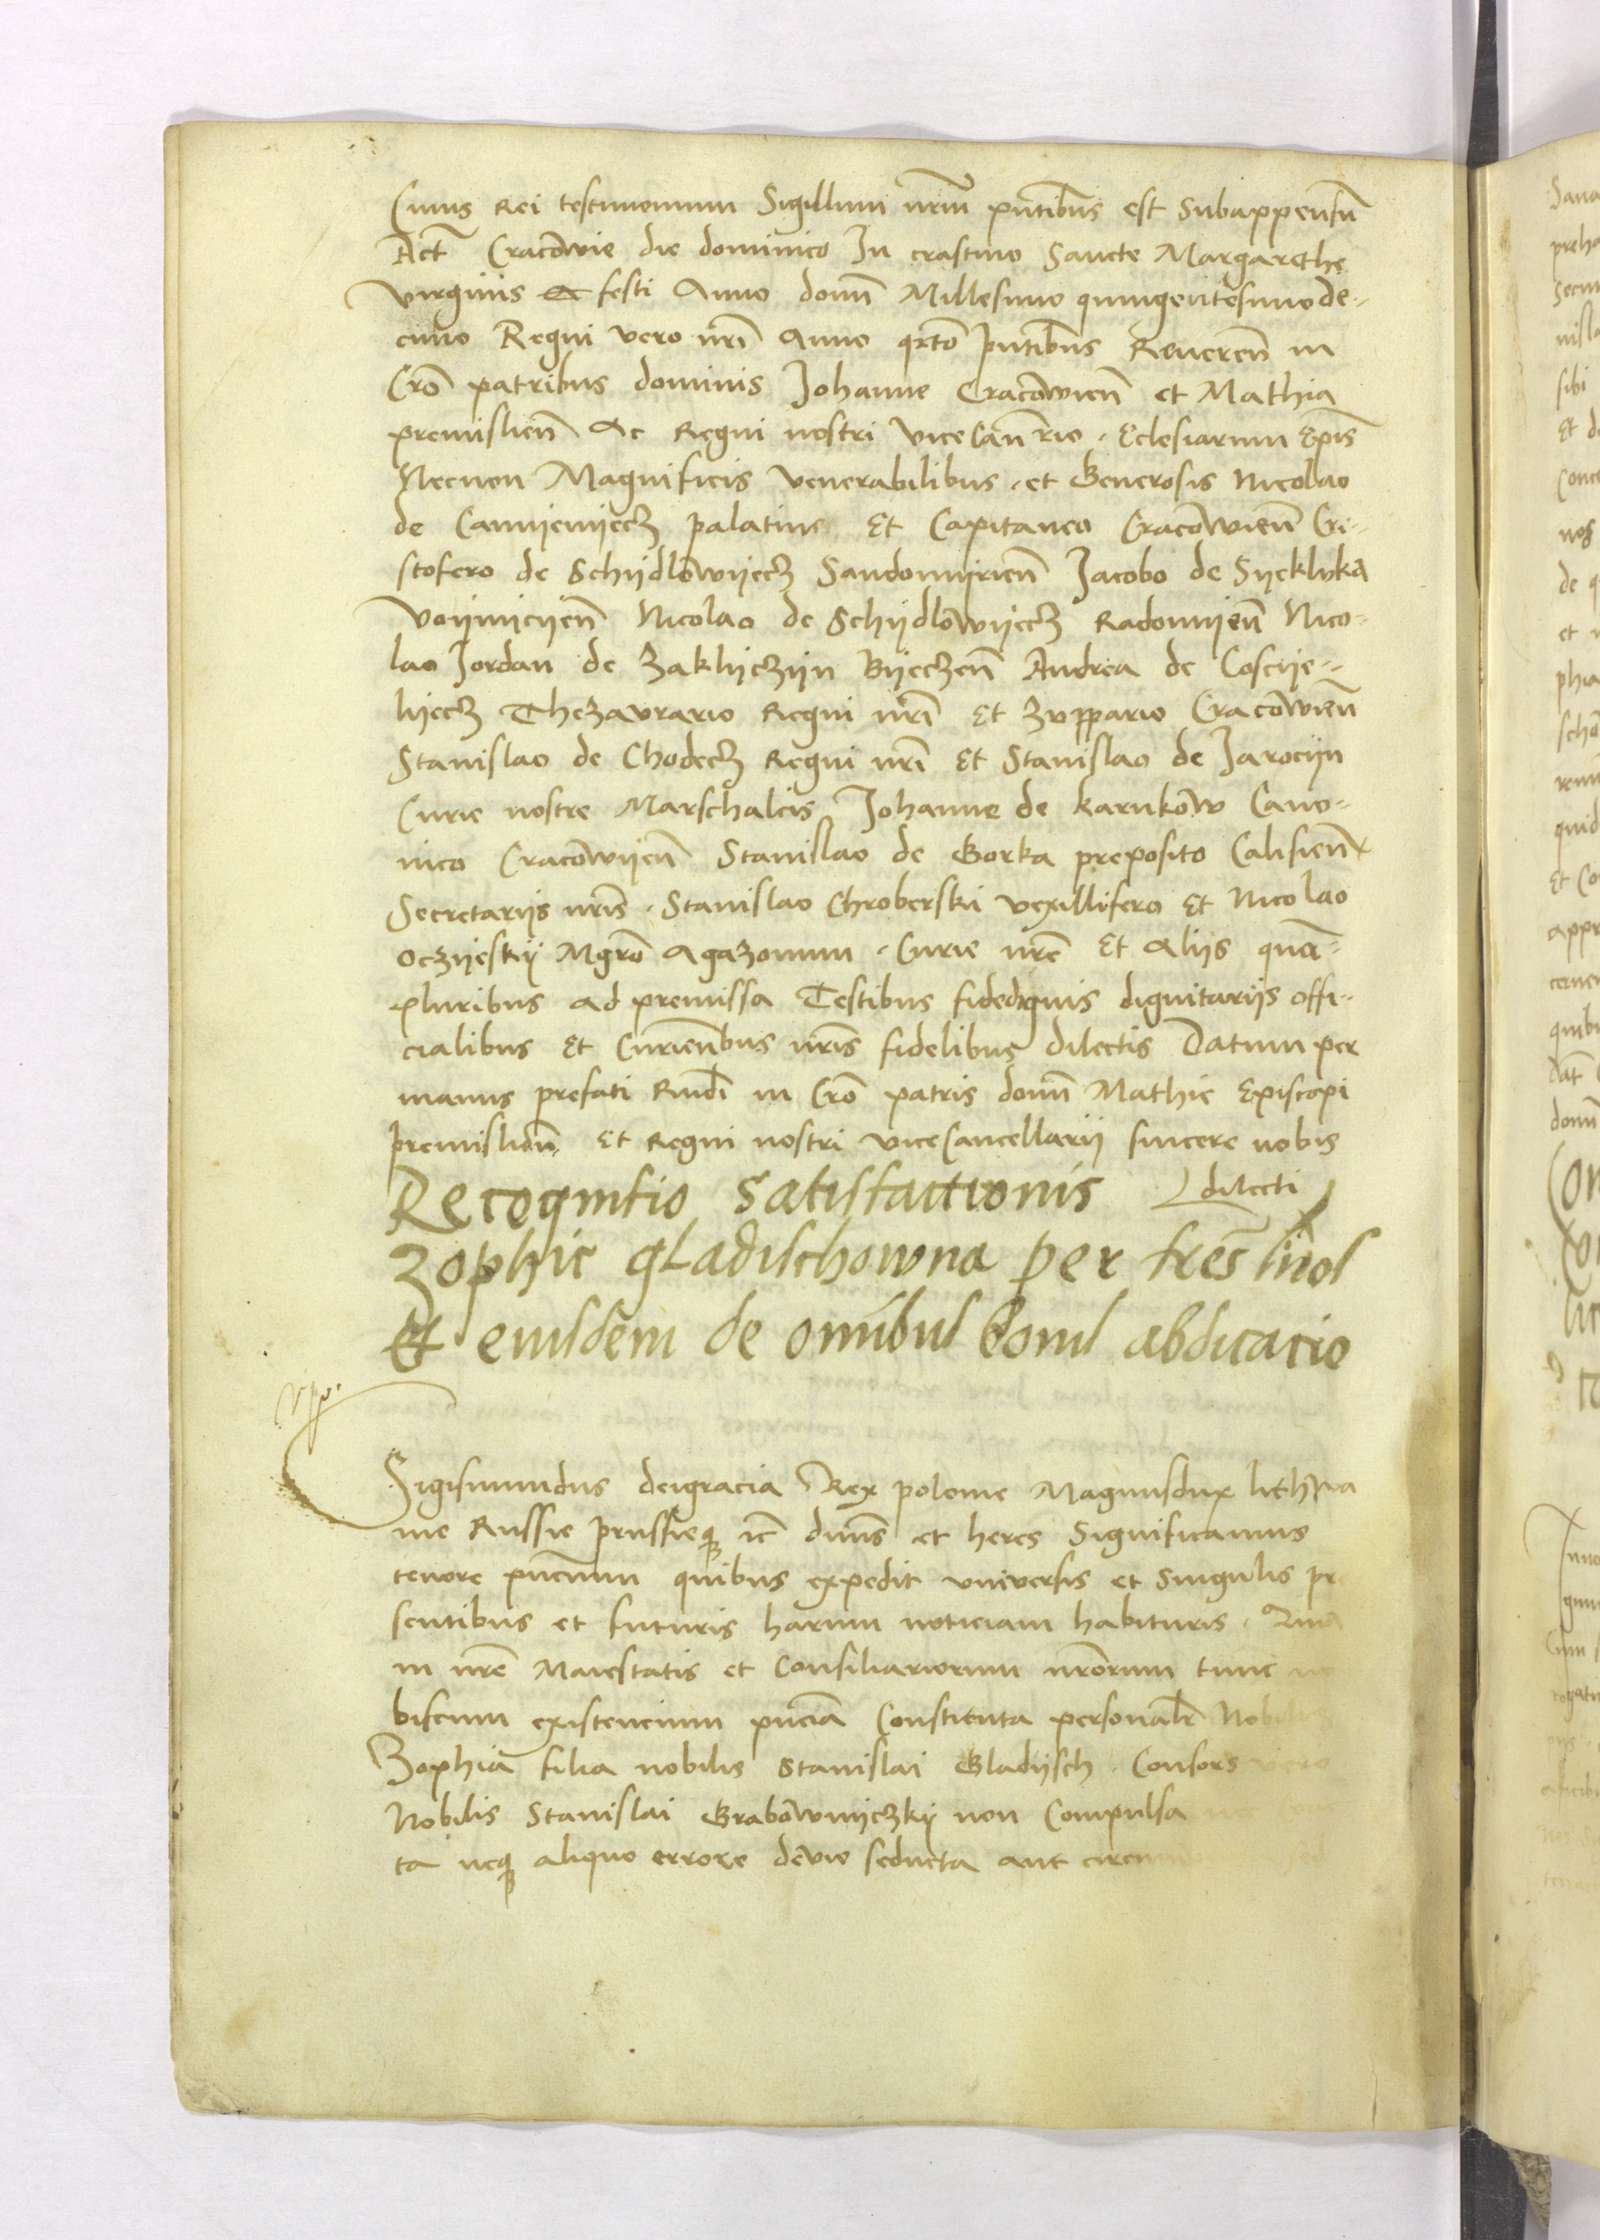 Cuius Rei testimonium Sigillum nrm̄ pn̄tibus est Subappensū
Act̄ Cracōwie die dominico In crastino Sancte Margarethe
virginis festi Anno domī Millesimo quingentesimo de-
cimo Regni vero nrī Anno qrto p̄ntibus Reueren̄ in
Crō patribus dominis Johanne Cracōwien̄ et Mathia
premislien̄ Ac Regni nostri vice Can̄rio . Eclesiarum Ep̄is
Necnon Magnificis venerabilibus . et Generosis Nicolao
de Camijenijecz palatino Et Capitaneo Cracōwien̄ Cri-
stofero de Schijdlōwijecz Sandomirien̄ Jacobo de Sijeklvka
voijnicijen̄ Nicolao de Schijdlōwijecz Radomijen̄ Nico-
lao Jordan de Zaklijczijn Bijeczen̄ Andrea de Coscije-
lijecz Thezavrario Regni nrī Et Zuppario Cracōwien̄
Stanislao de Chodecz Regni nrī Et Stanislao de Jarocijn
Curie nostre Marschalcis Johanne de Karnkōw Cano-
nico Cracōwijen̄ Stanislao de Gorka preposito Calisien̄
Secretarijs nrīs . Stanislao Chroberski vexillifero Et Nicolao
Oczijeskij Mgrō Agazonum . Curie nrē Et Alijs quā-
pluribus ad premissa Testibus fidedignis dignitarijs offi-
cialibus Et Curien̄bus nrīs fidelibus dilectis Datum per
manus prefati Rndī in Crō patris domī Mathie Episcopi
premislien̄ Et Regni nostri viceCancellarij sincere nobis
dilecti
Recognitio satisfactionis
Zophie gladischowna per frēs suos
Et eiusdem de omībus bonis abdicacio
Sigismundus deigracia Rex polonie Magnusdux lithwa
nie Russie prussieq̄ ic̄ dnus et heres Significamus
tenore pn̄cium quibus expedit vniversis et Singulis pre
sentibus et futuris harum noticiam habituris .
in nrē Maiestatis et Consiliariorum nrōrum tunc no
biscum existencium pn̄cia Constituta personalr̄ Nobilis
Zophia filia nobilis Stanislai Gladijsch . Consors vero
Nobilis Stanislai Grabōwnijczkij non Compulsa
ta neq̄ aliquo errore devio seducta aut circum